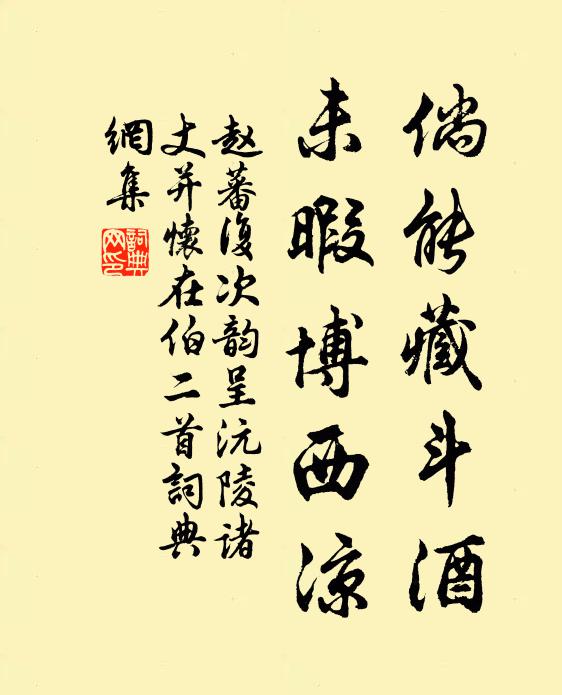 倘能藏斗酒
未暇博西凉
赵蕃復次韵呈沅陵诸
丈并懷在伯二首詞典
網集
詞典
网印